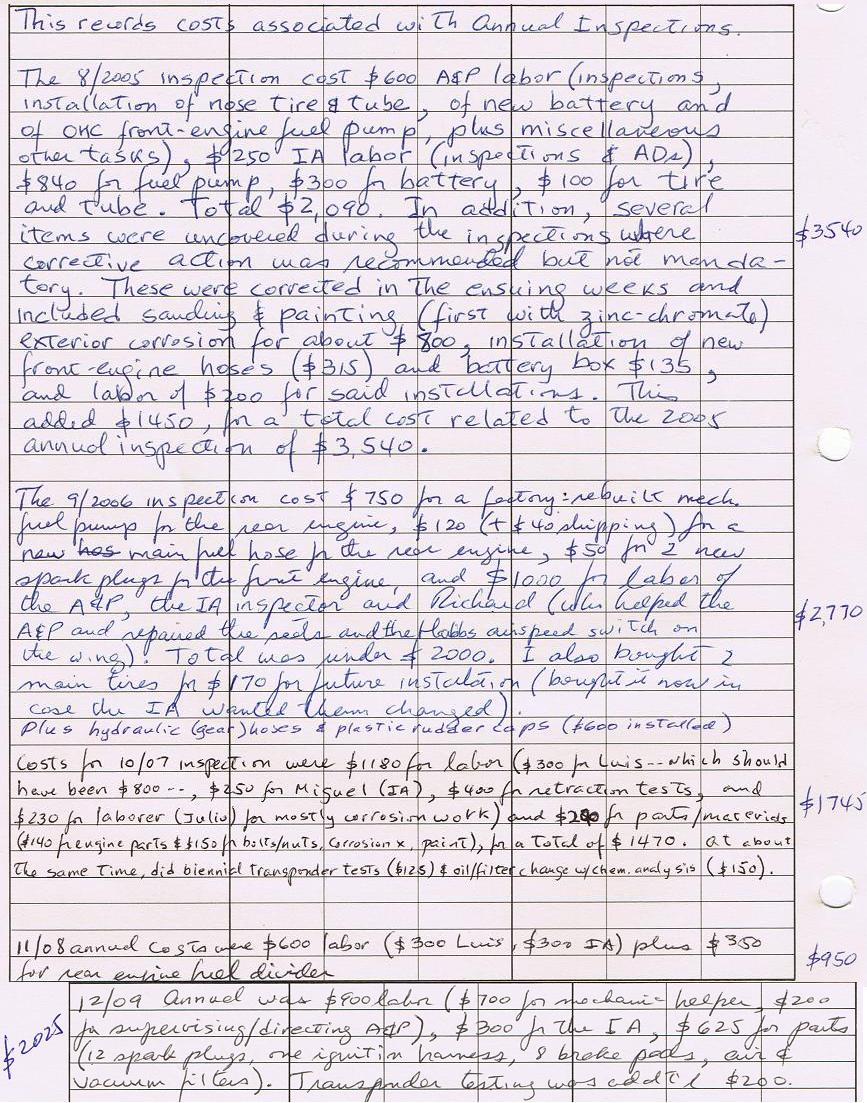 This records costs associated with Annual Inspections.
The 8/2005 inspection cost $600 A&P labor (inspections,
installation of nose tire & tube, of new battery and
of OHC front-engine fuel pump, plus miscellaneous
other tasks), $250 IA labor (inspections & ADs),
$840 for fuel pump, $300 for battery, $100 for tire
and tube. Total $2,090. In addition, several
items were uncovered during the inspections where
$3540
corrective action was recommended but not manda-
tory. These were corrected in the ensuing weeks and
included sanding & painting (first with zinc-chromate)
exterior corrosion for about $800, installation of new
front-engine hoses ($315) and battery box $135,
and labor of $200 for said installations. This
added $1450, for a total cost related to the 2005
annual inspection of $3,540.
The 9/2006 inspection cost $750 for a factory-rebuilt mech.
fuel pump for the rear engine, $120 (+ $40 shipping) for a
new main fuel hose for the rear engine, $50 for 2 new
spark plugs for the front engine, and $1000 for labor of
the A&P, the IA inspector and Richard (who helped the
$2,770
A&P and repaired the seats and the Hobbs airspeed switch on
the wing). Total was under $2000. I also bought 2
main tires for $170 for future installation (bought it now in
case the IA wanted them changed).
Plus hydraulic (gear) hoses & plastic rudder caps ($600 installed)
Costs for 10/07 inspection were $1180 for labor ($300 for Luis -- which should
have been $800 --, $250 for Miguel (IA), $400 for retraction tests, and
$1745
$230 for laborer (Julio) for mostly corrosion work) and $290 for parts/materials
($140 for engine parts & $150 for bolts/nuts, Corrosion X, paint), for a total of $1470. At about
the same time, did biennial transponder tests ($125) & oil/filter change w/chem. analysis ($150).
11/08 annual costs were $600 labor ($300 Luis, $300 IA) plus $350
$950
for rear engine fuel divider
12/09 Annual was $900 labor ($700 for mechanic helper, $200
$2025
for supervising/directing A&P), $300 for the IA, $625 for parts
(12 spark plugs, one ignition harness, 8 brake pads, air &
vacuum filters). Transponder testing was addt'l $200.